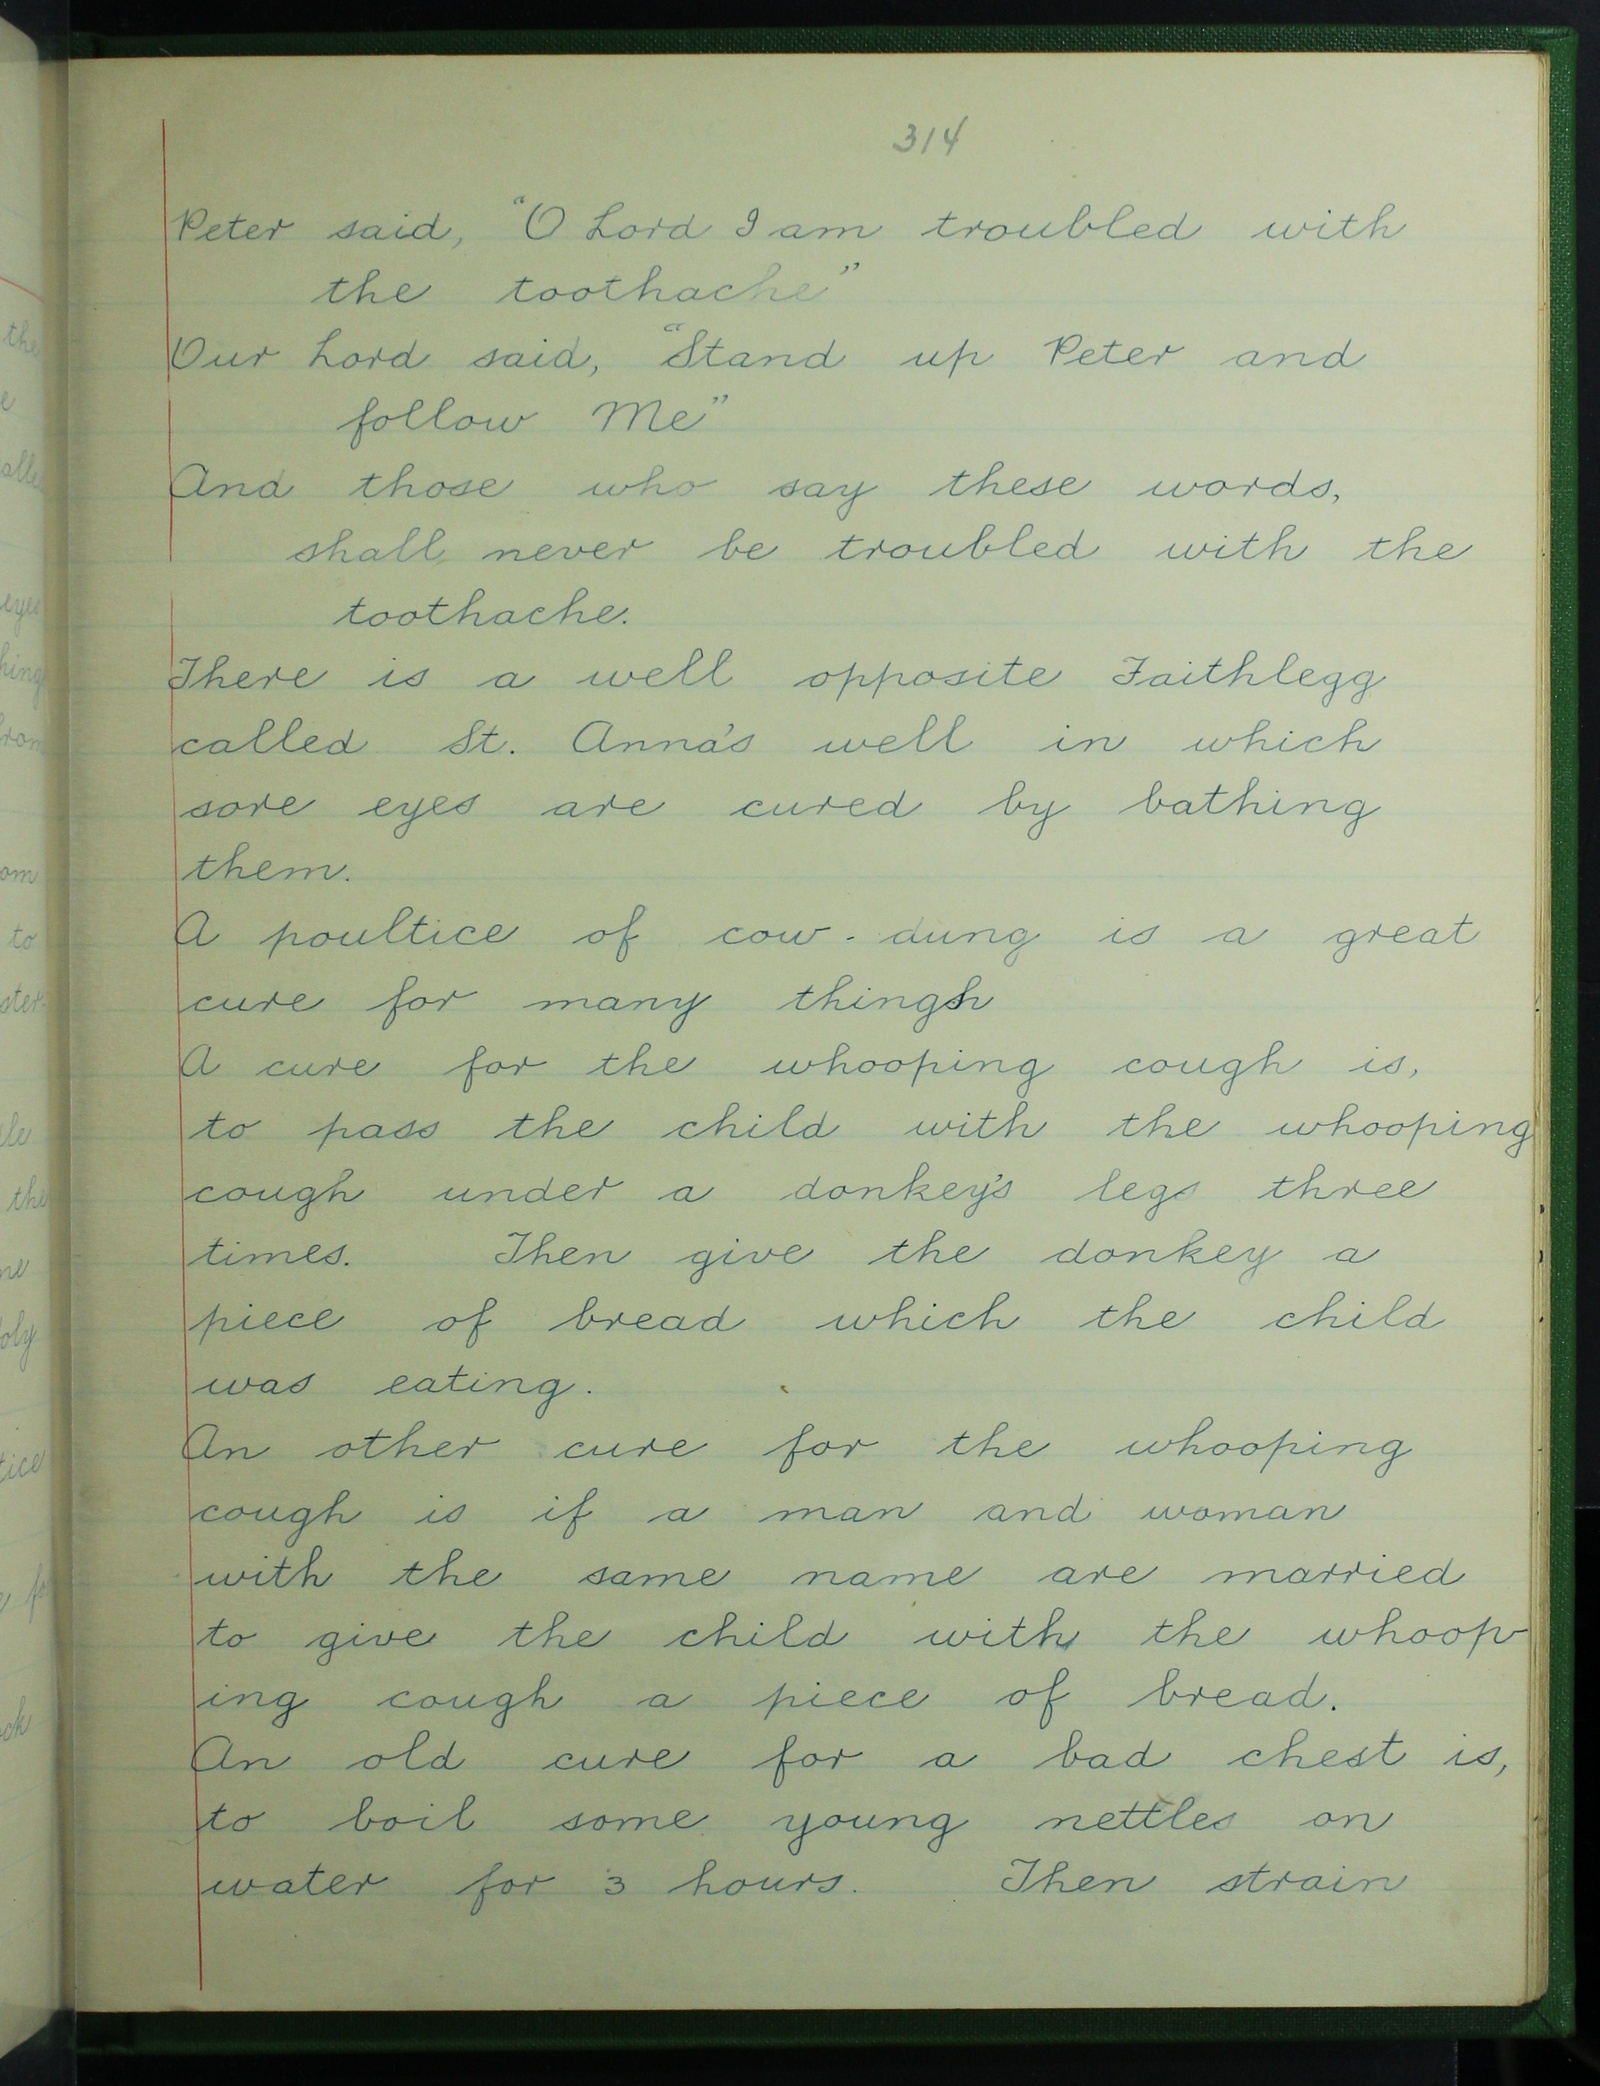 314
Peter said, "O Lord I am troubled with
the toothache"
Our Lord said, "Stand up Peter and
follow Me"
And those who say these words,
shall never be troubled with the
toothache.
There is a well opposite Faithlegg
called St. Anna's well in which
sore eyes are cured by bathing
them.
A poultice of cow-dung is a great
cure for many things
A cure for the whooping cough is,
to pass the child with the whooping
cough under a donkey's legs three
times. Then give the donkey a
piece of bread which the child
was eating.
An other cure for the whooping
cough is if a man and woman
with the same name are married
to give the child with the whoop
ing cough a piece of bread.
An old cure for a bad chest is,
to boil some young nettles on
water for 3 hours. Then strain